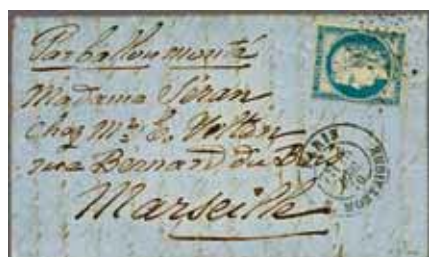 Par ballon monté
Madame Séran
chez Mr. E. Voltan
rue Bernard du Bois
Marseille
PARIS